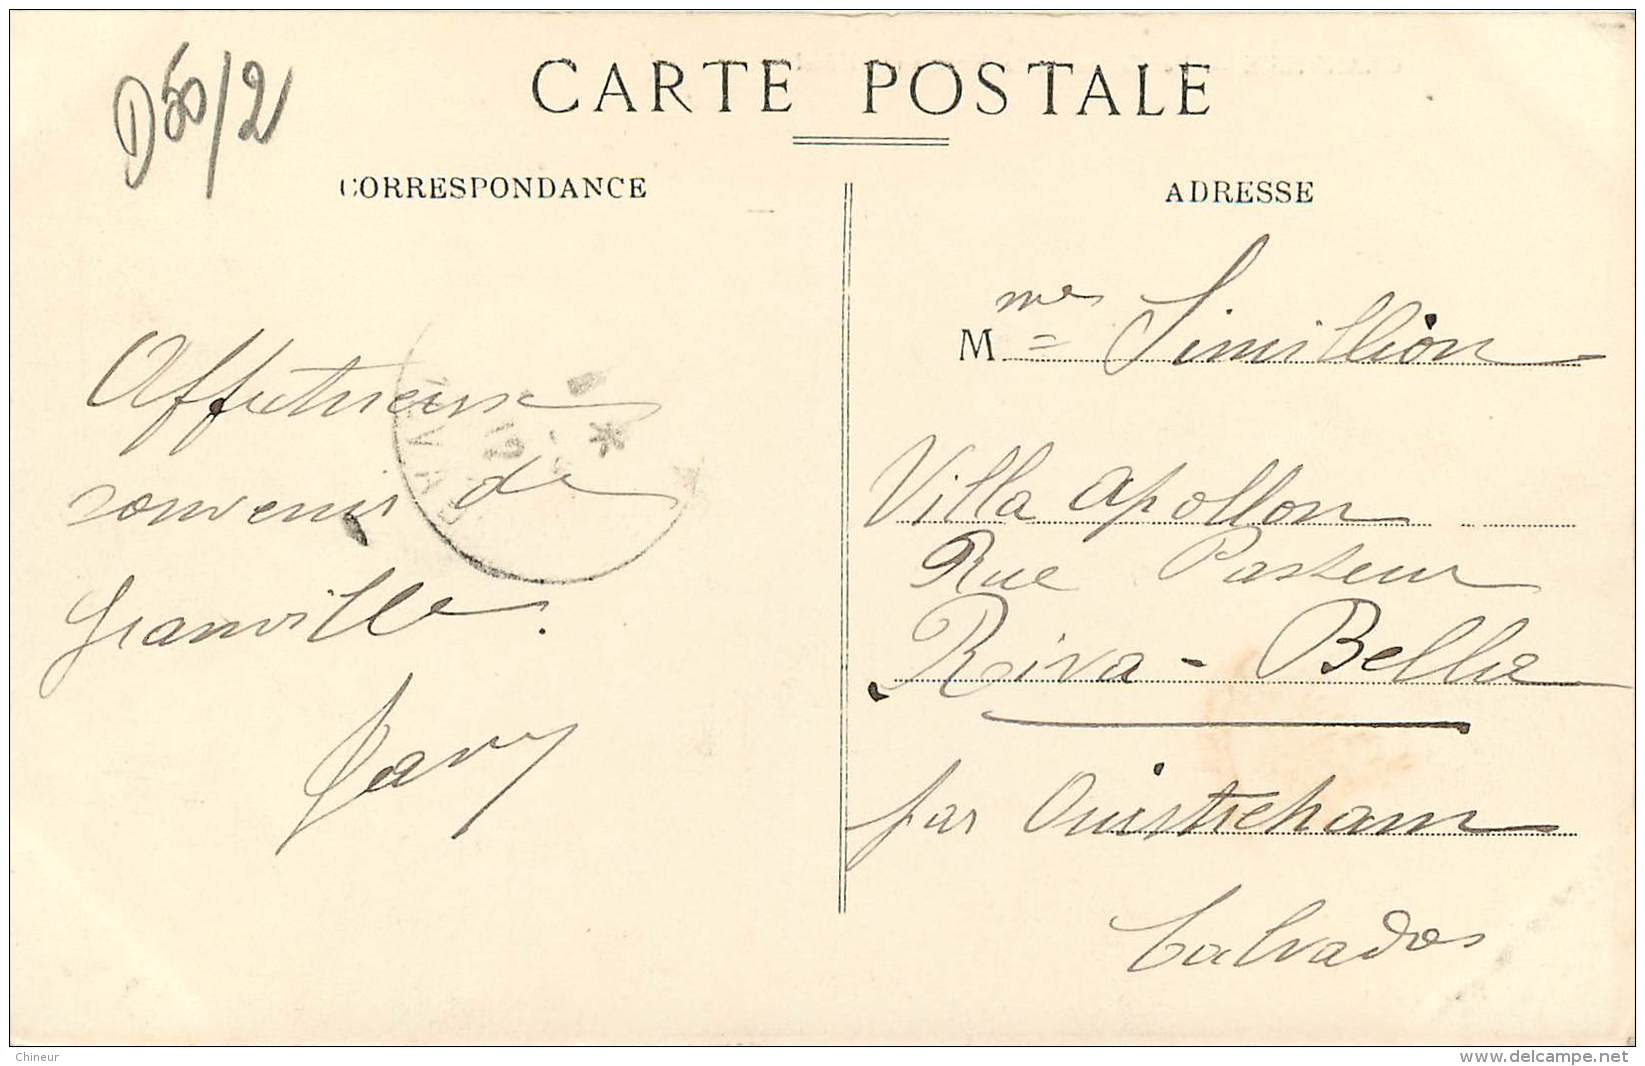 D50/2
CARTE POSTALE
CORRESPONDANCE
Affectueux
souvenir de
Granville.
ADRESSE
Mme Simillion
Villa Apollon
Rue Pasteur
Riva-Bella
par Ouistreham
Calvados
Chineur
www.delcampe.net